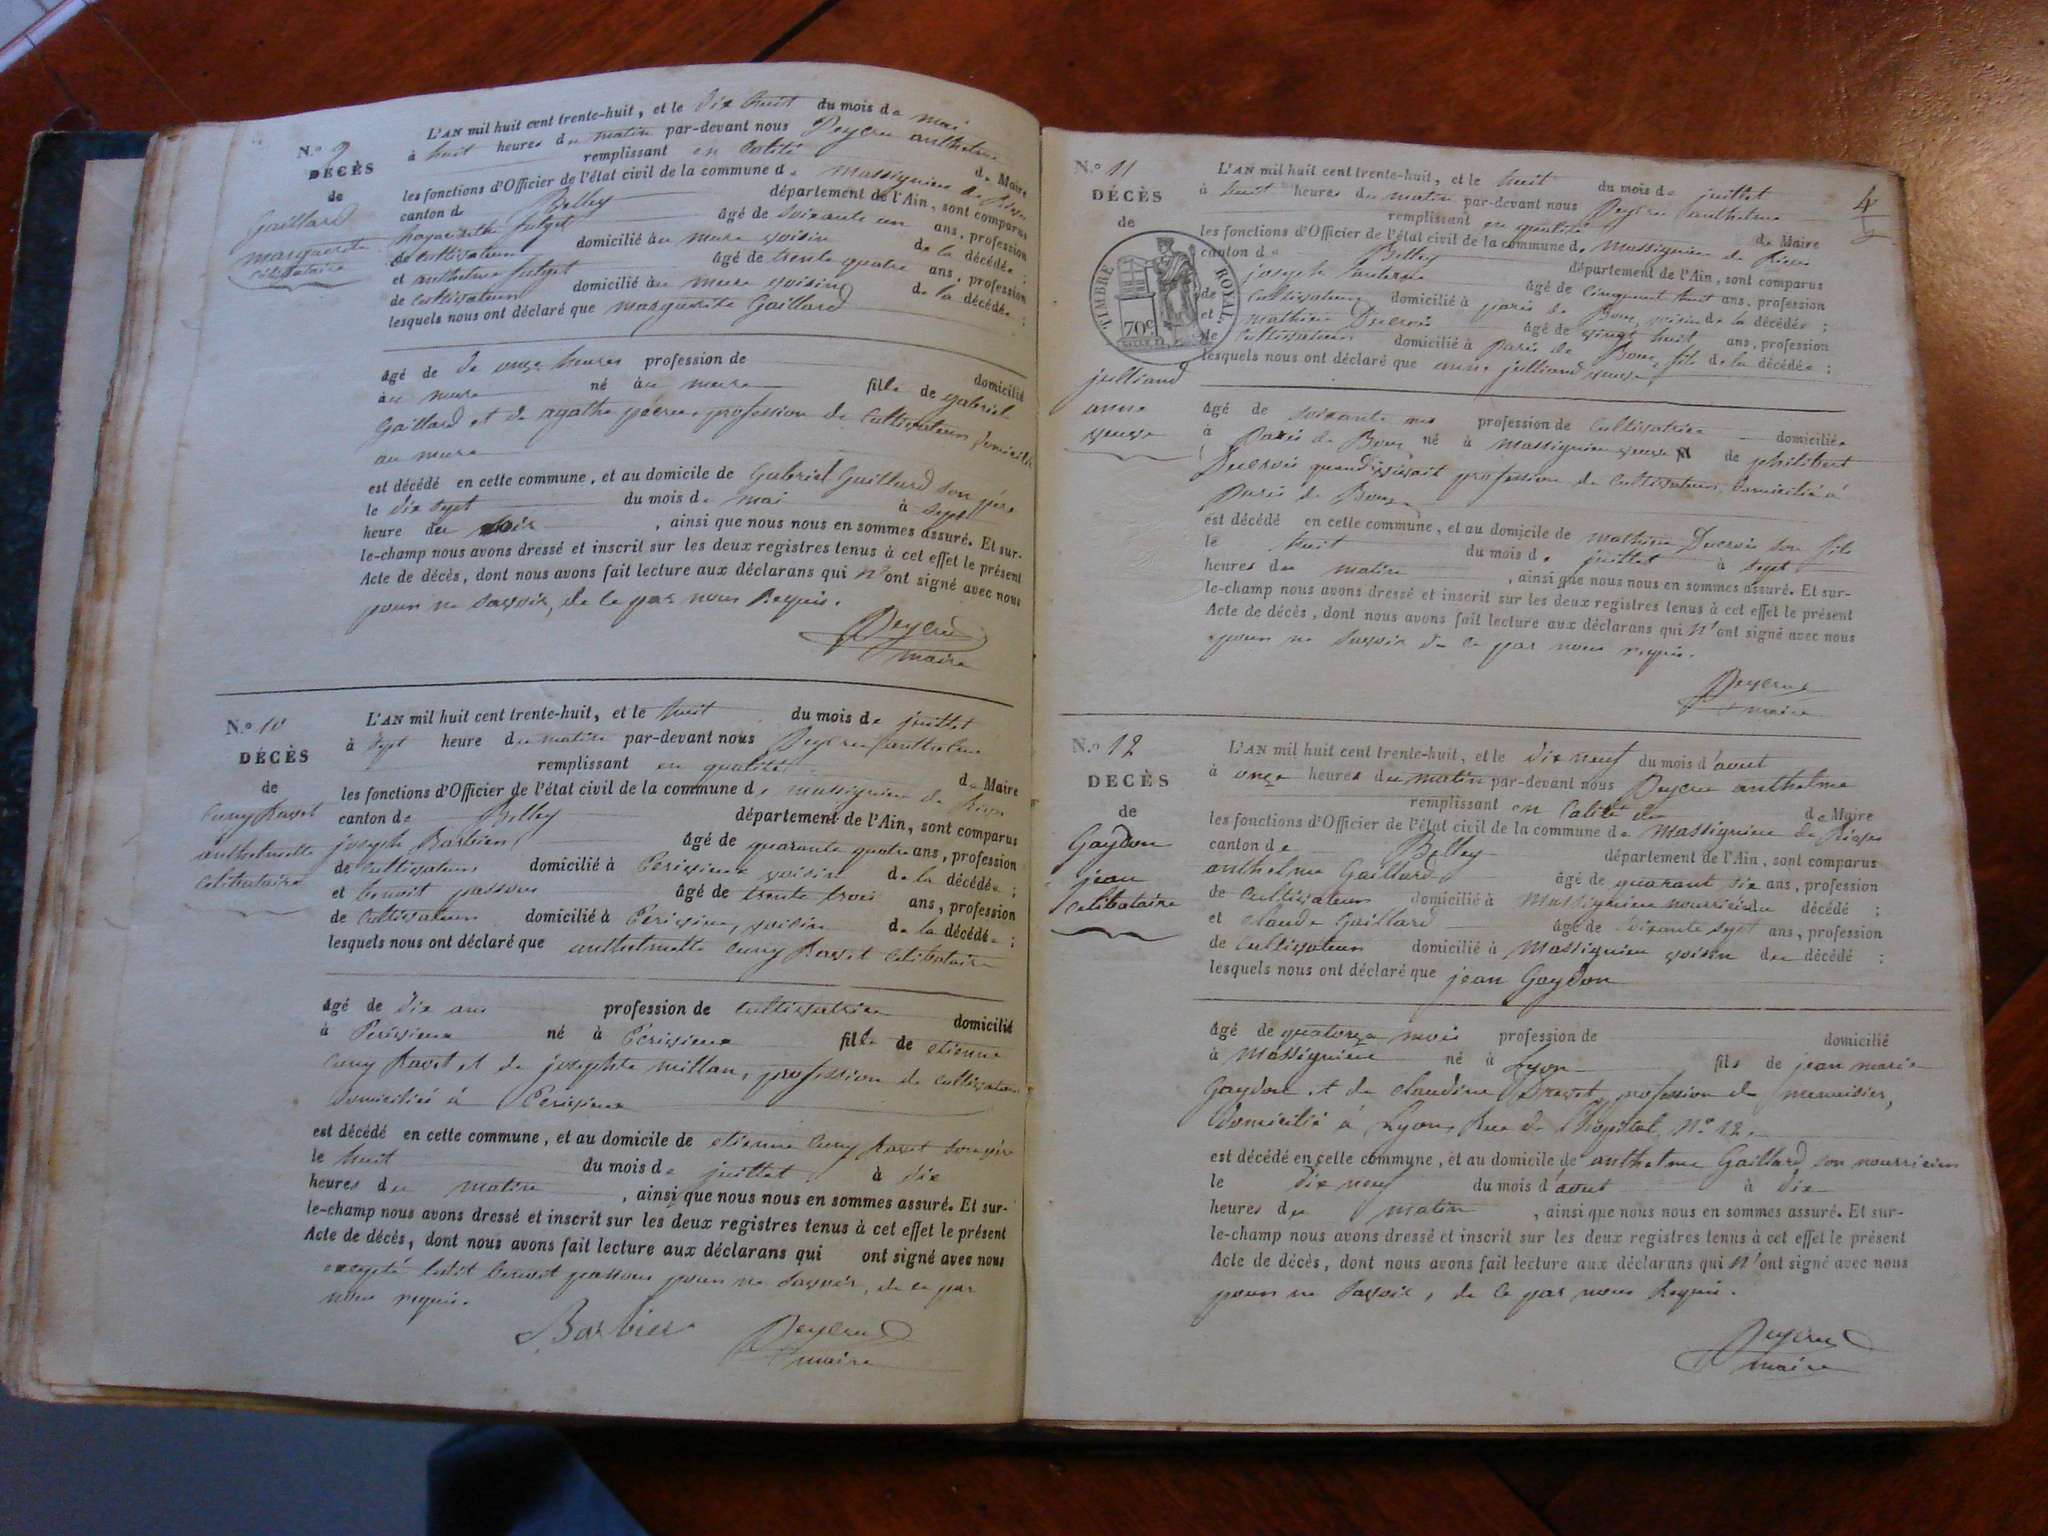 N.º 9
DÉCÈS
de
Gaillard
marguerite
célibataire
L'AN mil huit cent trente-huit, et le dix huit du mois de mai
à huit heures du matin par-devant nous Peycru anthelme
remplissant en calité de Maire
les fonctions d'Officier de l'état civil de la commune de Massignieu de Rives
canton de Belley département de l'Ain, sont comparus
âgé de soixante un ans, profession
de cultivateur domicilié au mure voisin de la décédée ;
et anthelme âgé de trente quatre ans, profession
de cultivateur domicilié au mure voisin de la décédée ;
lesquels nous ont déclaré que marguerite Gaillard
âgé de de onze heures profession de domicilié
au mure né au mure fille de gabriel
Gaillard et de agathe profession de cultivateur domicilié
au mure
est décédé en cette commune, et au domicile de Gabriel Gaillard son père
le dix sept du mois de mai à sept
heure du soir , ainsi que nous nous en sommes assuré. Et sur-
le-champ nous avons dressé et inscrit sur les deux registres tenus à cet effet le présent
Acte de décès, dont nous avons fait lecture aux déclarans qui n'ont signé avec nous
pour ne savoir, de ce par nous Requis.
Peycru
maire
N.º 10
DÉCÈS
de
Cuny Ravet
anthelmette
célibataire
L'AN mil huit cent trente-huit, et le huit du mois de juillet
à sept heure du matin par-devant nous Peycru anthelme
remplissant en qualité de Maire
les fonctions d'Officier de l'état civil de la commune de massignieu de Rives
canton de Belley département de l'Ain, sont comparus
joseph Barbier âgé de quarante quatre ans, profession
de cultivateur domicilié à voisin de la décédée ;
et benoit passour âgé de trente trois ans, profession
de cultivateur domicilié à voisin de la décédée ;
lesquels nous ont déclaré que anthelmette Cuny Ravet célibataire
âgé de dix ans profession de cultivatrice domicilié
à né à fille de etienne
Cuny Ravet et de josephte millan, profession de cultivateur
domiciliés à
est décédé en cette commune, et au domicile de etienne Cuny Ravet son père
le huit du mois de juillet à six
heures du matin , ainsi que nous nous en sommes assuré. Et sur-
le-champ nous avons dressé et inscrit sur les deux registres tenus à cet effet le présent
Acte de décès, dont nous avons fait lecture aux déclarans qui ont signé avec nous
excepté ledit benoit passour pour ne savoir, de ce par
nous requis.
Barbier Peycru
maire
4
N.º 11
DÉCÈS
de
TIMBRE ROYAL
70c
julliand
anne
veuve
L'AN mil huit cent trente-huit, et le huit du mois de juillet
à huit heures du matin par-devant nous Peycru anthelme
remplissant en qualité de Maire
les fonctions d'Officier de l'état civil de la commune de Massignieu de Rives
canton de Belley département de l'Ain, sont comparus
joseph âgé de cinquant huit ans, profession
de cultivateur domicilié à paris de Bouz, voisin de la décédée ;
et mathieu Ducrois âgé de vingt huit ans, profession
de cultivateur domicilié à paris de Bouz, fils de la décédée ;
lesquels nous ont déclaré que anne julliand veuve
âgé de soixante ans profession de cultivatrice domiciliée
à Paris de Bouz né à massignieu veuve de philibert
Ducrois quand vivait profession de cultivateur domicilié à
Paris de Bouz
est décédé en cette commune, et au domicile de mathieu Ducrois son fils
le huit du mois de juillet à sept
heures du matin , ainsi que nous nous en sommes assuré. Et sur-
le-champ nous avons dressé et inscrit sur les deux registres tenus à cet effet le présent
Acte de décès, dont nous avons fait lecture aux déclarans qui n'ont signé avec nous
pour ne savoir de ce par nous requis.
Peycru
maire
N.º 12
DÉCÈS
de
Gaydon
jean
célibataire
L'AN mil huit cent trente-huit, et le dix neuf du mois d'aout
à onze heures du matin par-devant nous Peycru anthelme
remplissant en calité de de Maire
les fonctions d'Officier de l'état civil de la commune de Massignieu de Rives
canton de Belley département de l'Ain, sont comparus
anthelme Gaillard âgé de quarant six ans, profession
de cultivateur domicilié à Massignieu nourricier du décédé ;
et claude Gaillard âgé de soixante sept ans, profession
de cultivateur domicilié à Massignieu voisin du décédé ;
lesquels nous ont déclaré que jean Gaydon
âgé de quatorze mois profession de domicilié
à Massignieu né à Lyon fils de jean marie
Gaydon et de claudine Dravet profession de menuisier,
domicilié à Lyon, Rue de l'hopital, N.º 12.
est décédé en cette commune, et au domicile de anthelme Gaillard son nourricier
le dix neuf du mois d'aout à dix
heures du matin , ainsi que nous nous en sommes assuré. Et sur-
le-champ nous avons dressé et inscrit sur les deux registres tenus à cet effet le présent
Acte de décès, dont nous avons fait lecture aux déclarans qui n'ont signé avec nous
pour ne savoir, de ce par nous Requis.
Peycru
maire